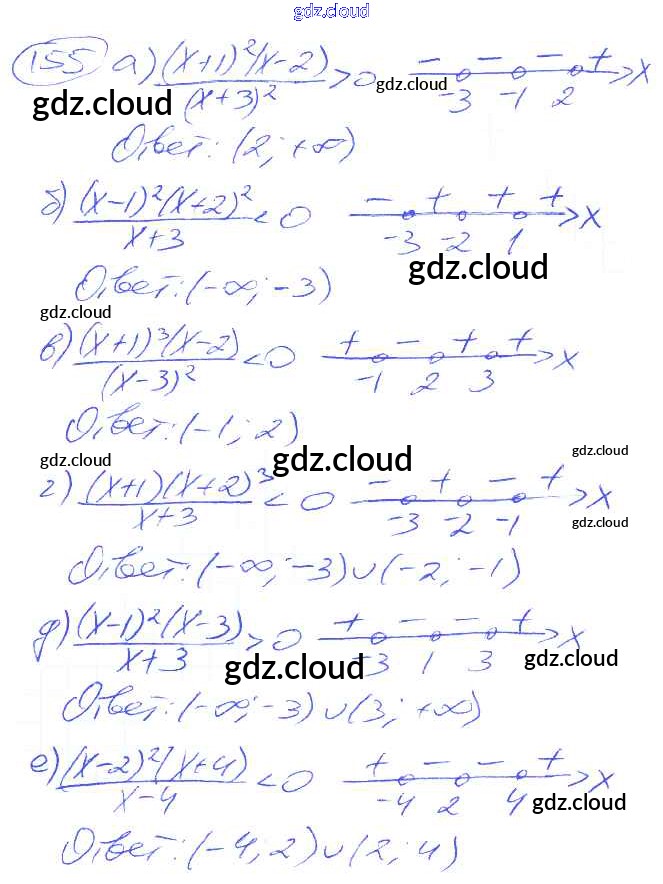 gdz.cloud
155 а) (x+1)²(x-2)/(x+3)² > 0 - - - + -3 -1 2 x
gdz.cloud
gdz.cloud
Ответ: (2; +∞)
б) (x-1)²(x+2)²/x+3 < 0 - + + + -3 -2 1 x
gdz.cloud
Ответ: (-∞; -3)
gdz.cloud
в) (x+1)³(x-2)/(x-3)² < 0 + - + + -1 2 3 x
Ответ: (-1; 2)
gdz.cloud
gdz.cloud
gdz.cloud
г) (x+1)(x+2)³/x+3 < 0 - + - + -3 -2 -1 x
gdz.cloud
Ответ: (-∞; -3)∪(-2; -1)
д) (x-1)²(x-3)/x+3 > 0 + - - + -3 1 3 x
gdz.cloud
gdz.cloud
Ответ: (-∞; -3)∪(3; +∞)
е) (x-2)²(x+4)/x-4 < 0 + - - + -4 2 4 x
gdz.cloud
Ответ: (-4; 2)∪(2; 4)